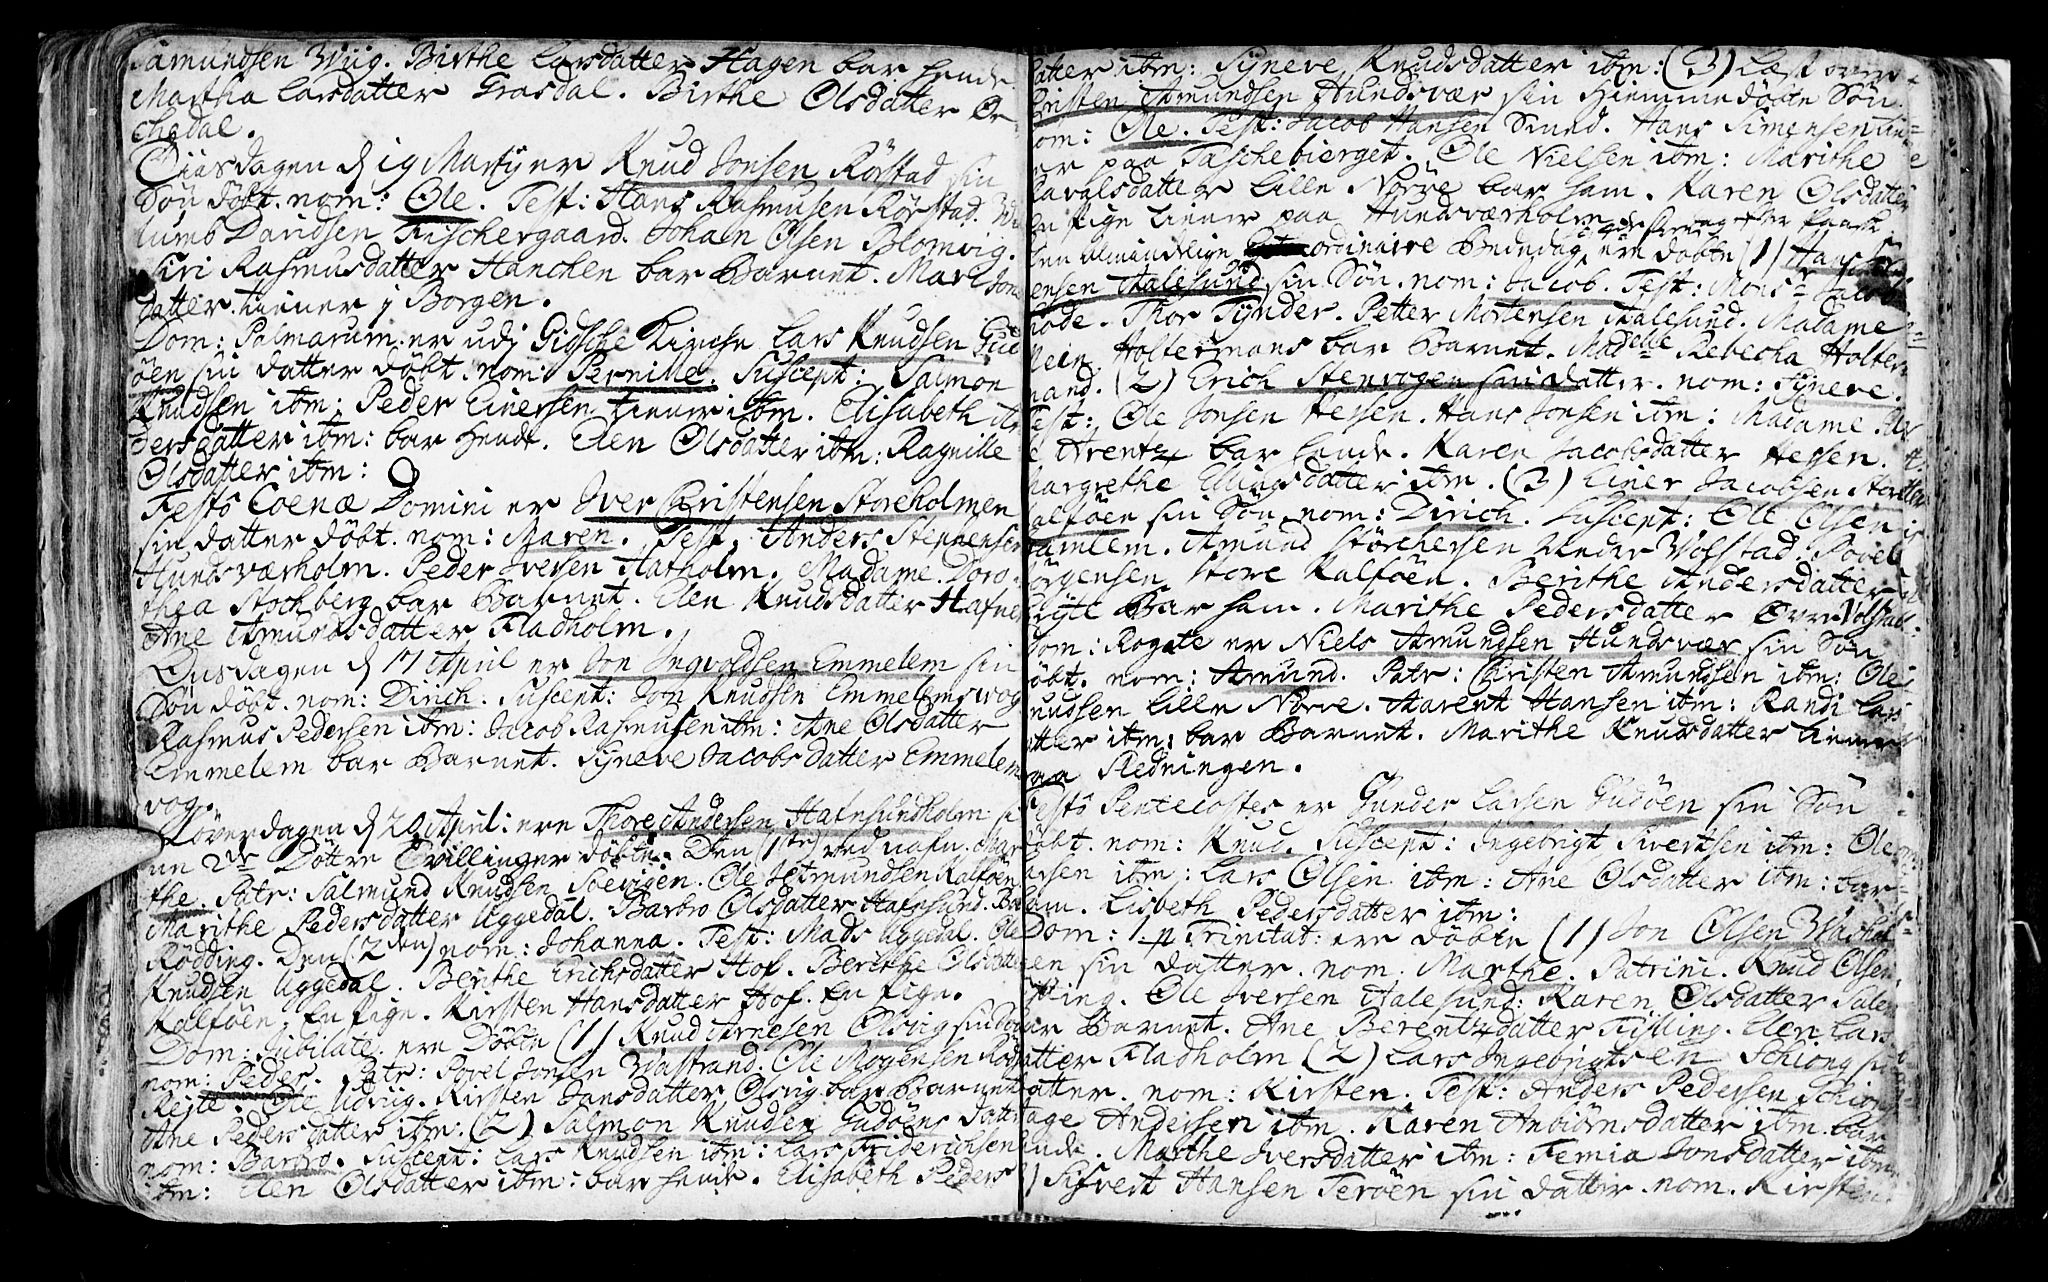 Samundsen Wiig. Birthe Larsdatter Hagen bar hende
Martha Larsdatter Grasdal. Birthe Olsdatter Or
chedal.
Tiisdagen d 19 Martij er Knud Jonsen Röstad sin
Sön döbt. nom: Ole. Test: Hans Rasmusen Rörstad.
lumb Davidsen Fischergaard. Johan Olsen Blomvig.
Siri Rasmusdatter Hanchen bar Barnet. Mari Jons
datter tiener j Borgen.
Dom: Palmarum er udj Gidsche Kirche Lars Knudsen Gud
öen sin datter döbt. nom: Pernille. Suscept: Salmon
Knudsen ibm: Peder Einersen tiener ibm. Elisabeth An
dersdatter ibm: bar hende. Elen Olsdatter ibm: Ragnille
Olsdatter ibm:
Festo Coenæ Domini er Iver Christensen Storeholmen
sin datter döbt. nom: Maren. Test. Anders Steffensen
Hundsværholm. Peder Iversen Flatholm. Madame Doro
thea Stochberg bar Barnet. Elen Knudsdatter Hafne
Ane Amundsdatter Fladholm.
Onsdagen d 17 April er Jon Ingvoldsen Emmelem sin
Sön döbt. nom: Dirich. Suscept: Jon Knudsen Emmelemsvog
Rasmus Pedersen ibm: Jacob Rasmusen ibm: Ane Olsdatter
Emmelem bar Barnet. Synneve Jacobsdatter Emmelem
vog.
Löverdagen d 20 April: ere Thore Andersen Hafnsundholm si
ne 2de Döttre Tvillinger döbte. Den (1ste) ved nafn. Mar
the. Patr: Salmund Knudsen Soevigen. Ole Asmundsen Kalföen
Marithe Pedersdatter Uggedal. Barbro Olsdatter Hafnsund.
Rödding. Den (2den) nom: Johanna. Test: Mads Uggedal. Ole
Knudsen Uggedal. Berithe Erichsdatter Hof. Berithe Olsdatter
Kalföen. En pige. Kirsten Hansdatter Hof. En pige.
Dom: Jubilate ere Döbte (1) Knud Arnesen Olsvig sin Sön
nom: Peder. Patr: Povel Jonsen Wastrand. Ole Mogensen Röds
Rejte. Ole Udvig. Kirsten Jansdatter Olsvig bar Barnet
Ane Pedersdatter ibm. (2) Salmon Knudsen Gudöens Datter
nom: Barbro. Suscept: Lars Knudsen ibm: Lars Friderichsen
ibm: Elen Olsdatter ibm: bar hende. Elisabeth Peders
datter ibm: Syneve Knudsdatter ibm: (3) Læst over
Cristen Amundsen Hundsvær sin hiemmedöbte Sön
nom: Ole. Test: Jacob Hansen Sund. Hans Simensen tie
ner paa Taschebierget. Ole Nielsen ibm: Marithe
Havalsdatter Lille Nörve bar ham. Karen Olsdatter
En pige tiener paa Hundsværholm.
Den almindelige ordinaire Bededag, 4de fredag efter Paaske ere döbte (1) Hans
ensen Aalesund sin Sön. nom: Jacob. Test: Monsr Jacob
Röde. Thor Tynder. Petter Mortensen Aalesund. Madame
Mein Holtermans bar Barnet. Madelle Rebecha Holter
mand. (2) Erich Stenvogen sin datter. nom: Syneve.
Test: Ole Jonsen Hessen. Hans Jonsen ibm: Madame
Arentz bar hende. Karen Jacobsdatter Hessen.
Margrethe Ellingsdatter ibm. (3) Einer Jacobsen Store
Kalföen sin Sön. nom: Dirich. Suscept: Ole Olsen
Hamlem. Amund Störchersen Under Wolstad. Povel
Jörgensen Store Kalföen. Berithe Andersdatter
Lyte bar ham. Marithe Pedersdatter Over Volstad.
Dom: Rogate er Niels Amundsen Hundsvær sin Sön
döbt. nom: Amund. Patr: Christen Amundsen ibm: Ole
Knudsen Lille Nörve. Marent Hansen ibm: Randi Lars
datter ibm: bar Barnet. Marithe Knudsdatter tiener
paa Sledningen.
Festo Pentecostes er Gunder Larsen Gudöen sin Sön
döbt. nom: Knud. Suscept: Ingebrigt Sivertsen ibm: Ole
Larsen ibm: Lars Olsen ibm: Ane Olsdatter ibm: bar
ham. Lisbeth Pedersdatter ibm:
Dom: 1. p Trinitat: ere döbte (1) Jon Olsen Washol
en sin datter. nom. Marthe. Patrini. Knud Olsen
Kipling. Ole Iversen Aalesund: Karen Olsdatter
bar Barnet. Ane Berentzdatter Kipling. Elen Lars
datter Fladholm (2) Lars Ingebrigtsen Schiong sin
datter. nom: Kirsten. Test: Anders Pedersen Schiong
Aage Andersen ibm. Karen Anbiörnsdatter ibm. bar
hende. Marthe Iversdatter ibm: Femia Jonsdatter ibm
(3) Sifvert Hansen Teröen sin datter. nom. Kirsten